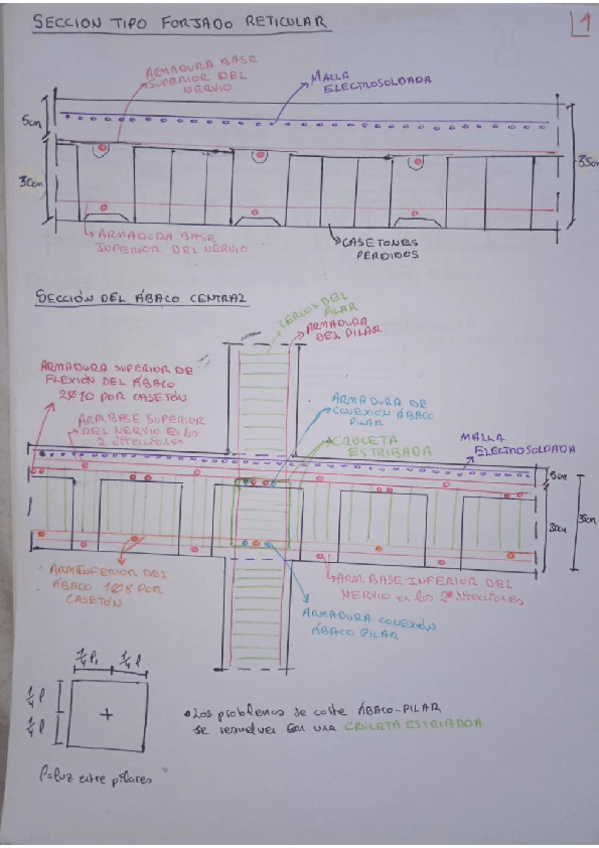 SECCION TIPO FORJADO RETICULAR
1
ARMADURA BASE
SUPERIOR DEL
NERVIO
MALLA
ELECTROSOLDADA
5cm
30cm
35cm
ARMADURA BASE
INFERIOR DEL NERVIO
CASETONES
PERDIDOS
SECCIÓN DEL ÁBACO CENTRAL
CERCOS DEL
PILAR
ARMADURA
DEL PILAR
ARMADURA SUPERIOR DE
FLEXIÓN DEL ÁBACO
2Ø10 POR CASETÓN
ARMADURA DE
CONEXIÓN ÁBACO
PILAR
ARM BASE SUPERIOR
DEL NERVIO EN LOS
2 direcciones
CRUCETA
ESTRIBADA
MALLA
ELECTROSOLDADA
5cm
30cm
35cm
ARM INFERIOR DEL
ÁBACO POR
CASETÓN
ARM BASE INFERIOR DEL
NERVIO en las 2 direcciones
ARMADURA CONEXIÓN
ÁBACO PILAR
1/4 l 1/4 l
1/4 l
1/4 l
• Los problemas de corte ÁBACO-PILAR
se resuelven con una CRUCETA ESTRIBADA
l=luz entre pilares